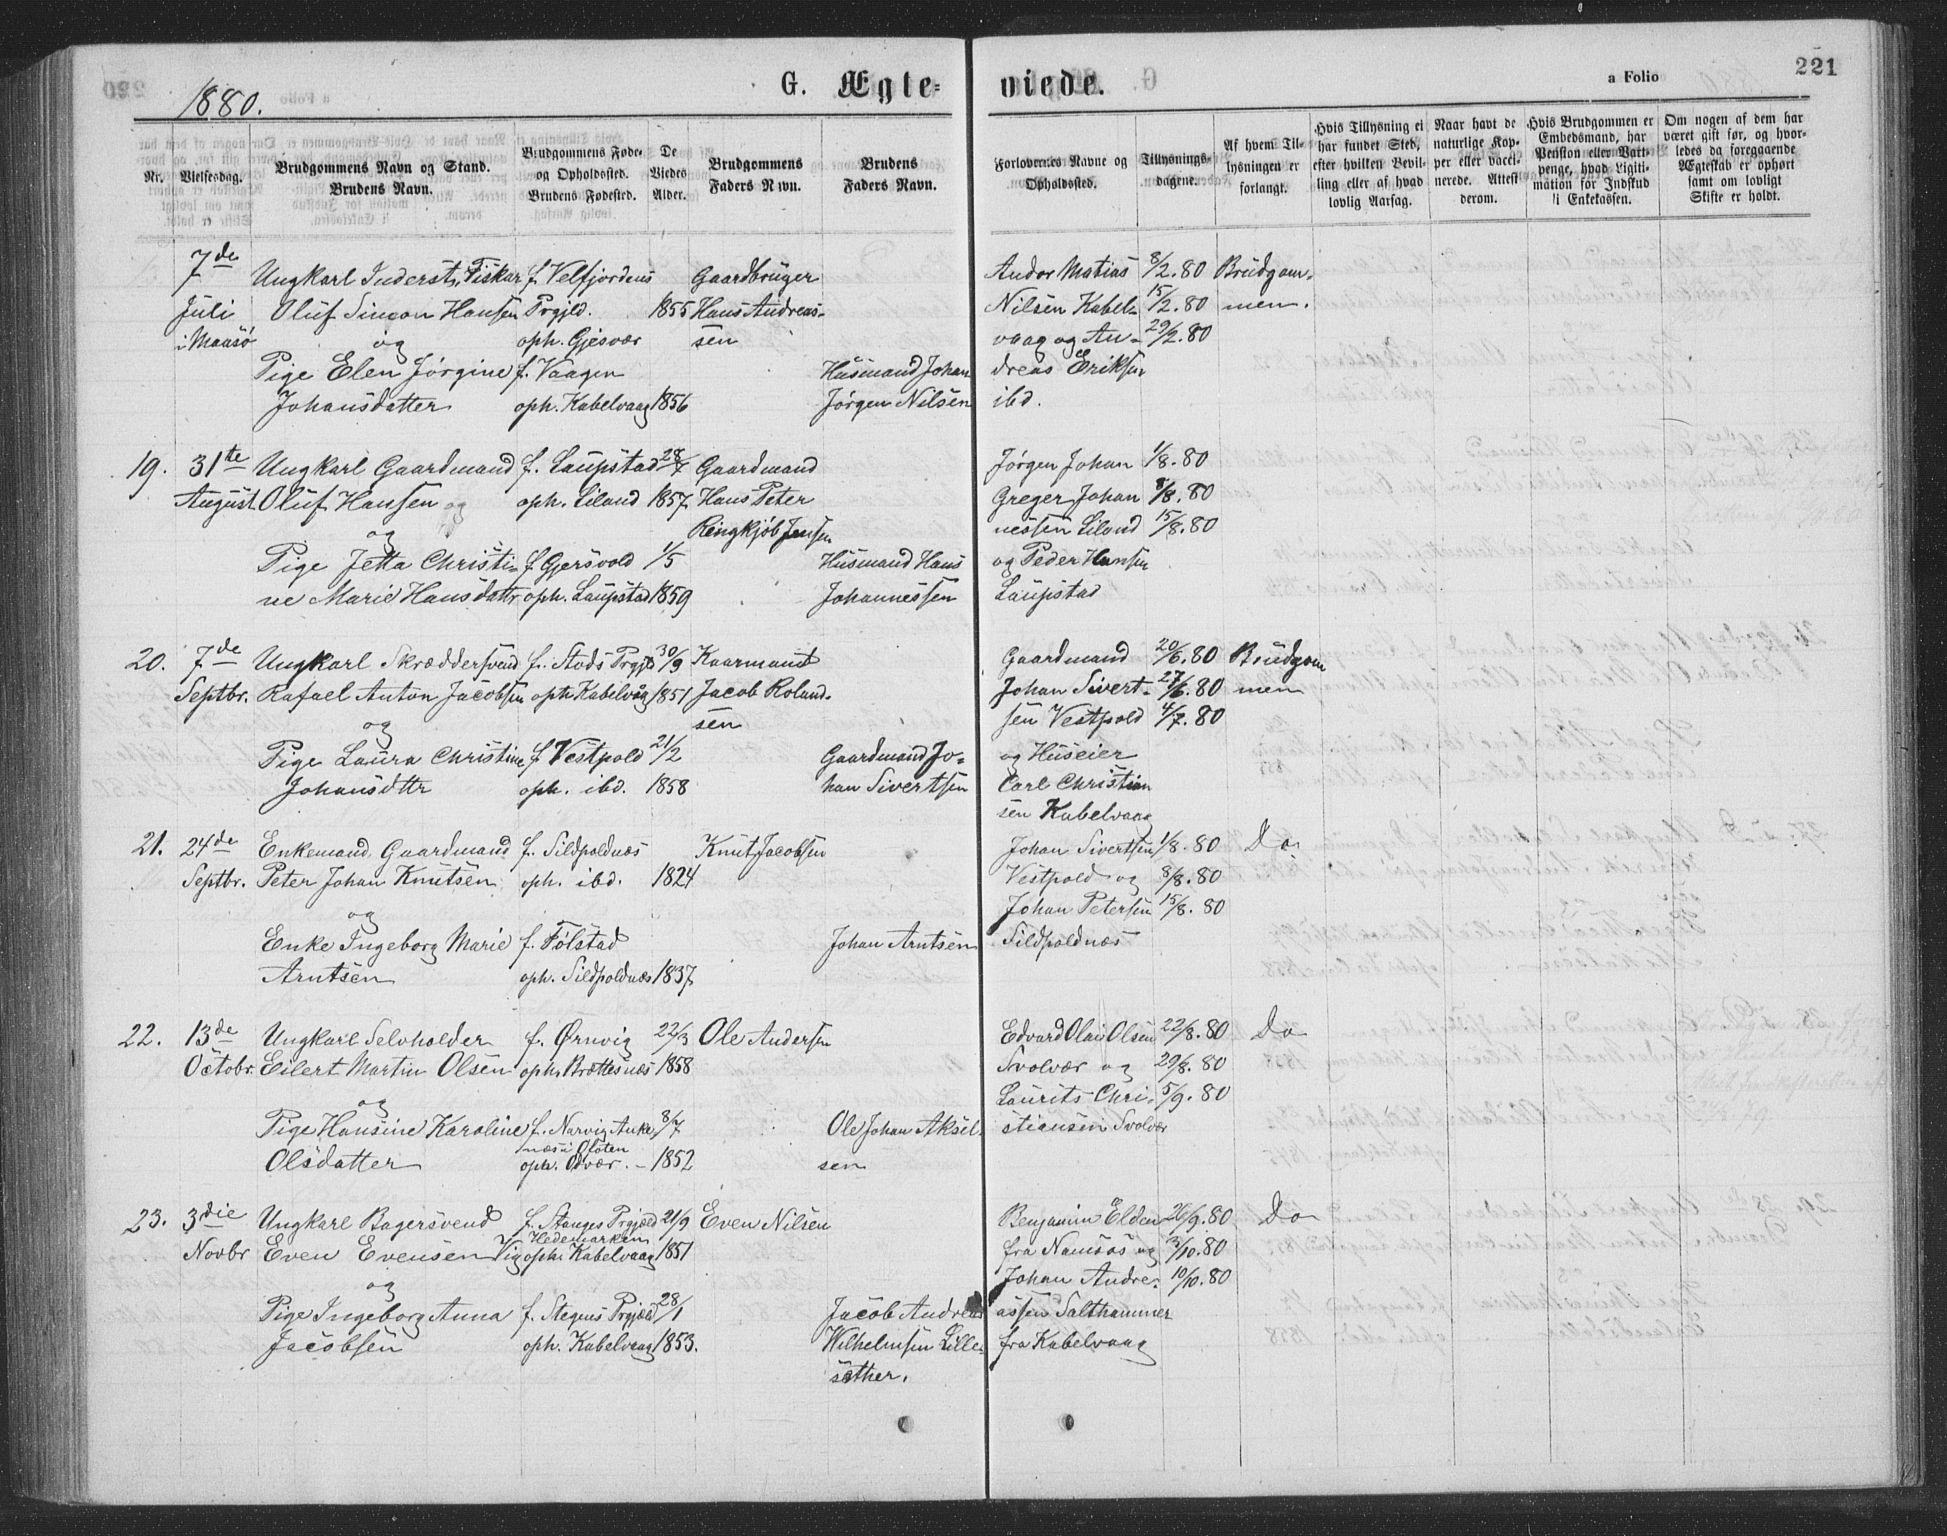 1880.
G. Ægte=
viede.
a Folio
221
Nr.
Vielsesdag.
Brudgommens Navn og Stand.
Brudens Navn.
Brudgommens Føde-
og Opholdssted.
Brudens Fødested.
De
Viedes
Alder.
Brudgommens
Faders Navn.
Brudens
Faders Navn.
Forlovernes Navne og
Opholdssted.
Tillysnings-
dagene.
Af hvem Til-
lysningen er
forlangt.
Hvis Tillysning ei
har fundet Sted,
efter hvilken Bevil-
ling eller af hvad
lovlig Aarsag.
Naar havt de
naturlige Kop-
per eller vacci-
nerede. Attest
derom.
Hvis Brudgommen er
Embedsmand, har
Pension eller Vart-
penge, hvad Ligiti-
mation for Indskud
i Enkekassen.
Om nogen af dem har
været gift før, og hvor-
ledes da foregaaende
Ægteskab er ophørt
samt om lovligt
Skifte er holdt.
7de
Juli
i Maasö
Ungkarl Inderst, Fisker
Oluf Simon Hansen
og
Pige Elen Jørgine
Johansdatter
f. Velfjordens
Prgjld.
oph. Gjesvær
f. Vaagen
oph. Kabelvaag
1855
1856
Gaardbruger
Hans Andreas-
sen
Husmand Johan
Jørgen Nilsen
Andor Matias
Nilsen Kabel-
vaag og An-
dreas Eriksen
ibd.
8/2.80
15/2.80
29/2.80
Brudgom-
men.
19.
31te
August
Ungkarl Gaardmand
Oluf Hansen og
og
Pige Jetta Christi-
ne Marie Hansdattr
f. Laupstad
oph. Liland
f. Gjersvold
oph. Laupstad
28/7
1857
1/5
1859
Gaardmand
Hans Peter
Ringkjøb Jensen
Husmand Hans
Johannessen
Jørgen Johan
Greger Johan
nessen Liland
og Peder Hansen
Laupstad
1/8.80
8/8.80
15/8.80
20.
7de
Septbr.
Ungkarl Skræddersvend
Rafael Anton Jacobsen
og
Pige Laura Christine
Johansdttr
f. Stods Prgjld
oph. Kabelvåg
f. Vestpold
oph. ibd.
30/9
1851
21/2
1858
Kaarmand
Jacob Roland-
sen
Gaardmand Jo-
han Sivertsen
Gaardmand
Johan Sivert-
sen Vestpold
og Huseier
Carl Christian
sen Kabelvaag
20/6.80
27/6.80
4/7.80
Brudgom
men
21.
24de
Septbr.
Enkemand, Gaardmand
Peter Johan Knutsen
og
Enke Ingeborg Marie
Arntsen
f. Sildpoldnæs
oph. ibd.
f. Følstad
oph. Sildpoldnæs
1824
1837
Knut Jacobsen
Johan Arntsen
Johan Sivertsen
Vestpold og
Johan Petersen
Sildpoldnæs
1/8.80
8/8.80
15/8.80
Do
22.
13de
Octobr
Ungkarl Selvholder
Eilert Martin Olsen
og
Pige Hansine Karoline
Olsdatter
f. Ørnvig
oph. Brættesnæs
f. Narvig Anke
næs i Ofoten
oph. Odvær.
22/3
1858
8/7
1852
Ole Andersen
Ole Johan Aksel-
sen
Edvard Olai Olsen
Svolvær og
Laurits Chri-
stiansen Svolvær
22/8.80
29/8.80
5/9.80
Do
23.
3die
Novbr
Ungkarl Bagersvend
Even Evensen Vig
og
Pige Ingeborg Anna
Jacobsen
f. Stanges Prgjæld
Hedemarken
oph. Kabelvaag
f. Stegens Prgjæld
oph. Kabelvaag
21/9
1851
28/1
1853.
Even Nilsen
Jacob Andreas
Wilhelmsen Lille-
sæther.
Benjamin Elden
fra Namsos og
Johan Andre-
assen Salthammer
fra Kabelvaag
26/9.80
3/10.80
10/10.80
Do